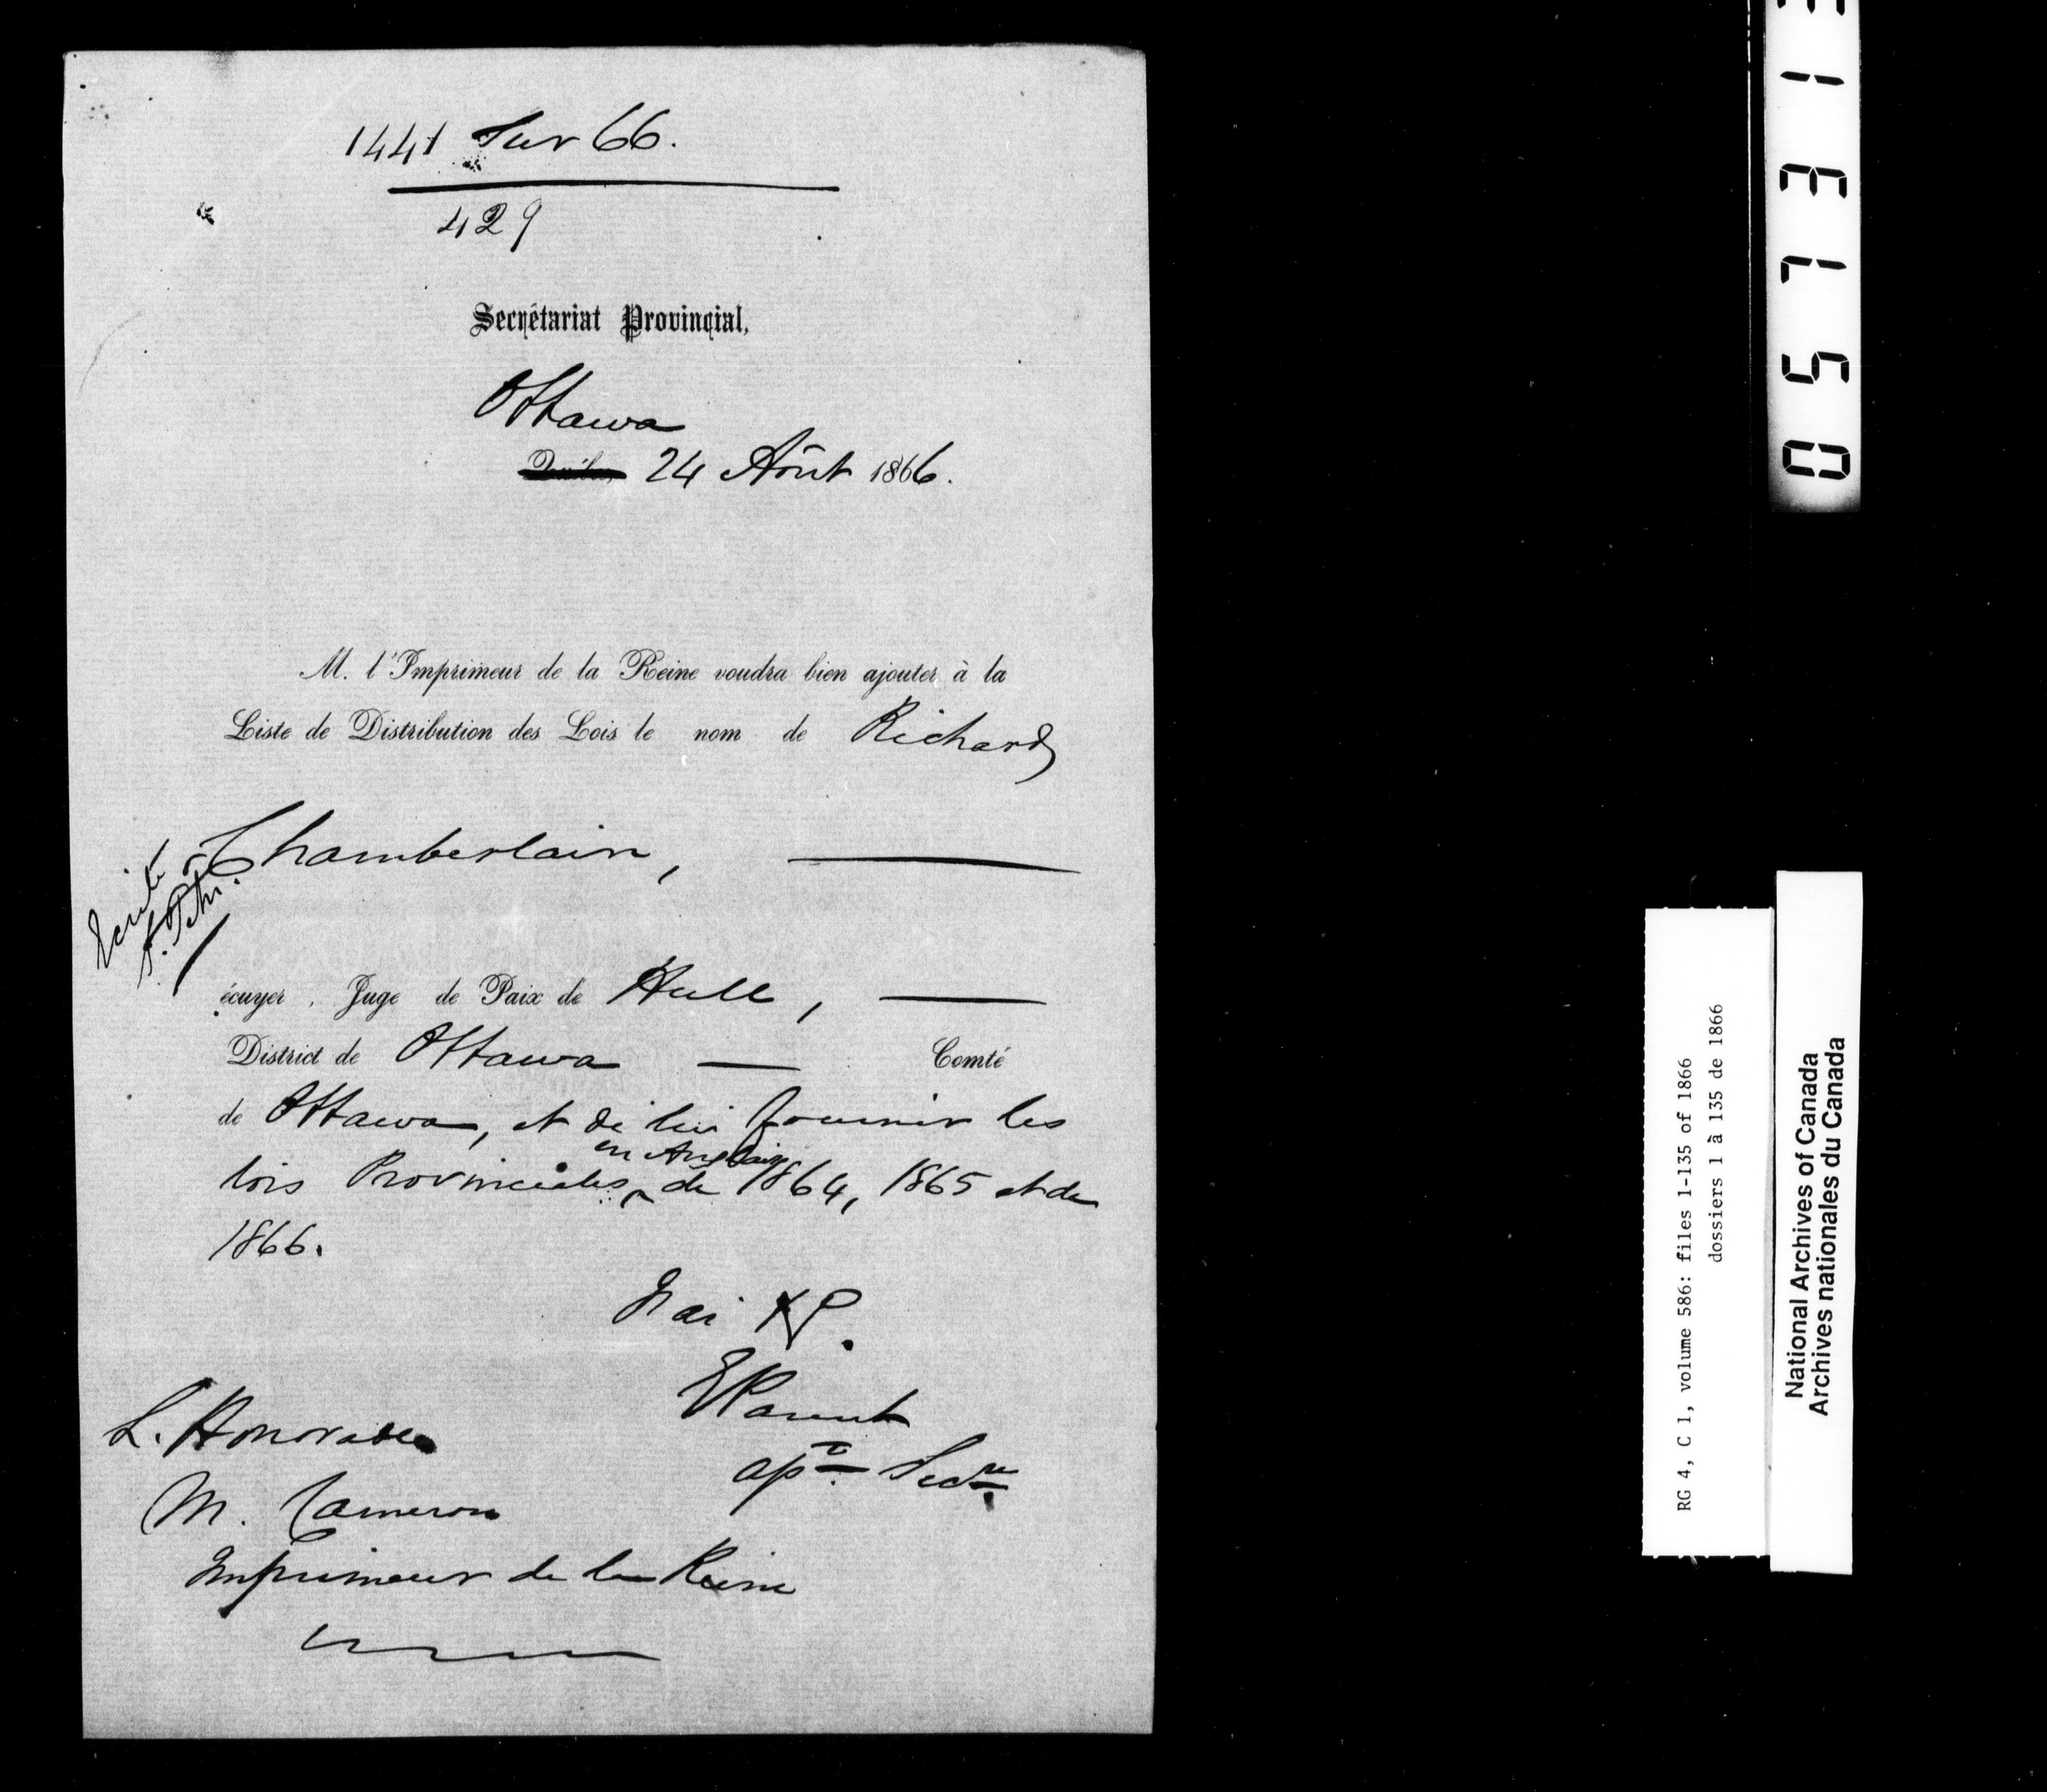 1441 Sur 66.
429
Secrétariat Provincial,
Ottawa
Québec, 24 Aôut 1866.
M. l'Imprimeur de la Reine voudra bien ajouter à la
Liste de Distribution des Lois le nom de Richard
Chamberlain,
écuyer, Juge de Paix de Hull,
District de Ottawa Comté
de Ottawa, et de lui fournir les
en Anglais
lois Provinciales de 1864, 1865 et de
1866.
EParent
Secre
L. Honorable
M. Cameron
Imprimeur de la Reine
05713
RG 4, C 1, volume 586: files 1-135 of 1866
dossiers 1 à 135 de 1866
National Archives of Canada
Archives nationales du Canada